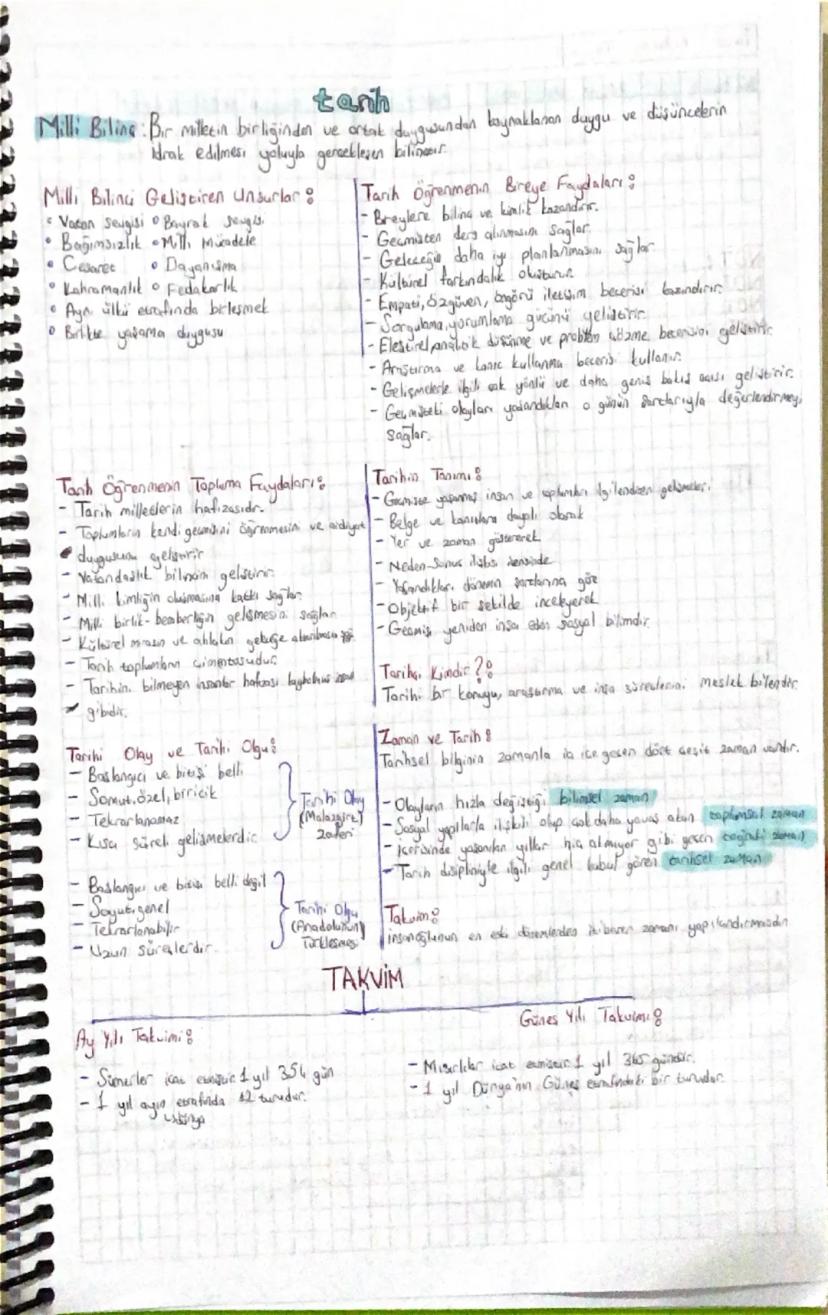 tarih
Milli Bilinç: Bir milletin birliğinden ve ortak duygusundan kaynaklanan duygu ve düşüncelerin
idrak edilmesi yoluyla gerçekleşen bilinçtir.
Milli Bilinci Geliştiren Unsurlar:
Vatan sevgisi Bayrak sevgisi
Bağımsızlık Milli Mücadele
Cesaret Dayanışma
Kahramanlık Fedakarlık
Aynı ülkü etrafında birleşmek
Birlikte yaşama duygusu
Tarih Öğrenmenin Bireye Faydaları:
- Breylere bilinç ve kimlik kazandırır.
- Geçmişten ders alınmasını sağlar.
- Geleceğin daha iyi planlanmasını sağlar.
- Kültürel farkındalık oluşturur.
- Empati, özgüven, öngörü iletişim becerisi kazandırır.
- Sorgulama, yorumlama gücünü geliştirir.
- Eleştirel, analitik düşünme ve problem çözme becerisini geliştirir.
- Araştırma ve kanıt kullanma becerisi kullanır.
- Gelişmelerle ilgili çok yönlü ve daha geniş bakış açısı geliştirir.
- Geçmişteki olayları yaşandıkları o günün şartlarıyla değerlendirmeyi
sağlar.
Tarih Öğrenmenin Topluma Faydaları:
- Tarih milletlerin hafızasıdır.
- Toplumların kendi geçmişini öğrenmesini ve aidiyet
duygusunu geliştirir
- Vatandaşlık bilincini geliştirir.
- Milli kimliğin oluşmasına katkı sağlar.
- Milli birlik-beraberliğin gelişmesini sağlar.
- Kültürel mirasın ve ahlakın geleceğe
- Tarih toplumların çimentosudur.
- Tarihini bilmeyen insanlar hafızası kaybolmuş insan
gibidir.
Tarihin Tanımı:
- Geçmişte yaşanmış insan ve toplumları ilgilendiren gelişmeleri.
- Belge ve kanıtlara dayalı olarak
- Yer ve zaman göstererek
- Neden-Sonuç ilişkisi içerisinde
- Yaşandıkları dönemin şartlarına göre
- Objektif bir şekilde inceleyerek
- Geçmişi yeniden inşa eden sosyal bilimdir.
Tarihçi Kimdir?:
Tarihi bir konuyu, araştırma ve inşa süreçlerini meslek bilendir.
Tarihi Olay ve Tarihi Olgu:
- Başlangıcı ve bitişi belli
- Somut, özel, biricik
- Tekrarlanamaz
- Kısa süreli gelişmelerdir.
Tarihi Olay
(Malazgirt)
zaferi
- Başlangıcı ve bitişi belli değil
- Soyut, genel
- Tekrarlanabilir
- Uzun süreçlerdir.
Tarihi Olgu
(Anadolunun)
Türkleşmesi
Zaman ve Tarih:
Tarihsel bilginin zamanla iç içe geçen dört çeşit zaman vardır.
- Olayların hızla değiştiği bilimsel zaman
- Sosyal yapılarla ilişkili olup çok daha yavaş akan toplumsal zaman
- İçerisinde yaşanılan yıllar hiç akmıyor gibi geçen coğrafi zaman
- Tarih disipliniyle ilgili genel kabul gören tarihsel zaman
Takvim:
insanoğlunun en eski dönemlerden itibaren zamanı yapılandırmasıdır
TAKVİM
Ay Yılı Takvimi:
- Sümerler icat etmiştir. 1 yıl 354 gün
- 1 yıl ayın etrafında 12 turudur.
↳dünya
Güneş Yılı Takvimi:
- Mısırlılar icat etmiştir. 1 yıl 365 gündür.
- 1 yıl Dünya'nın Güneş etrafındaki bir turudur.